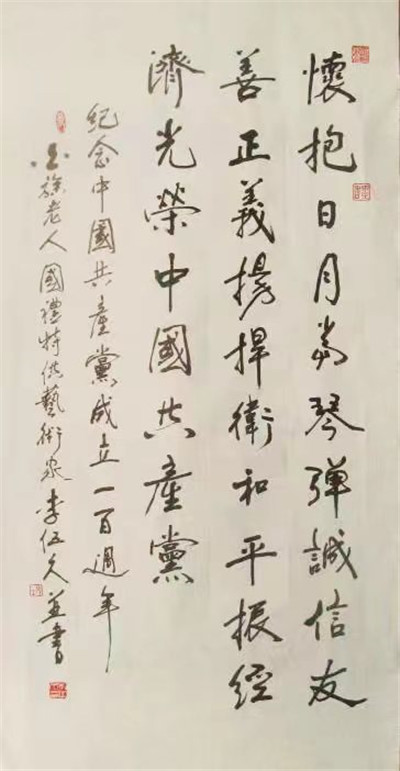 懷抱日月當琴彈誠信友
善正義揚捍衛和平振經
濟光榮中國共產黨
紀念中國共產黨成立一百週年
土族老人國禮特供藝術家李伍久並書